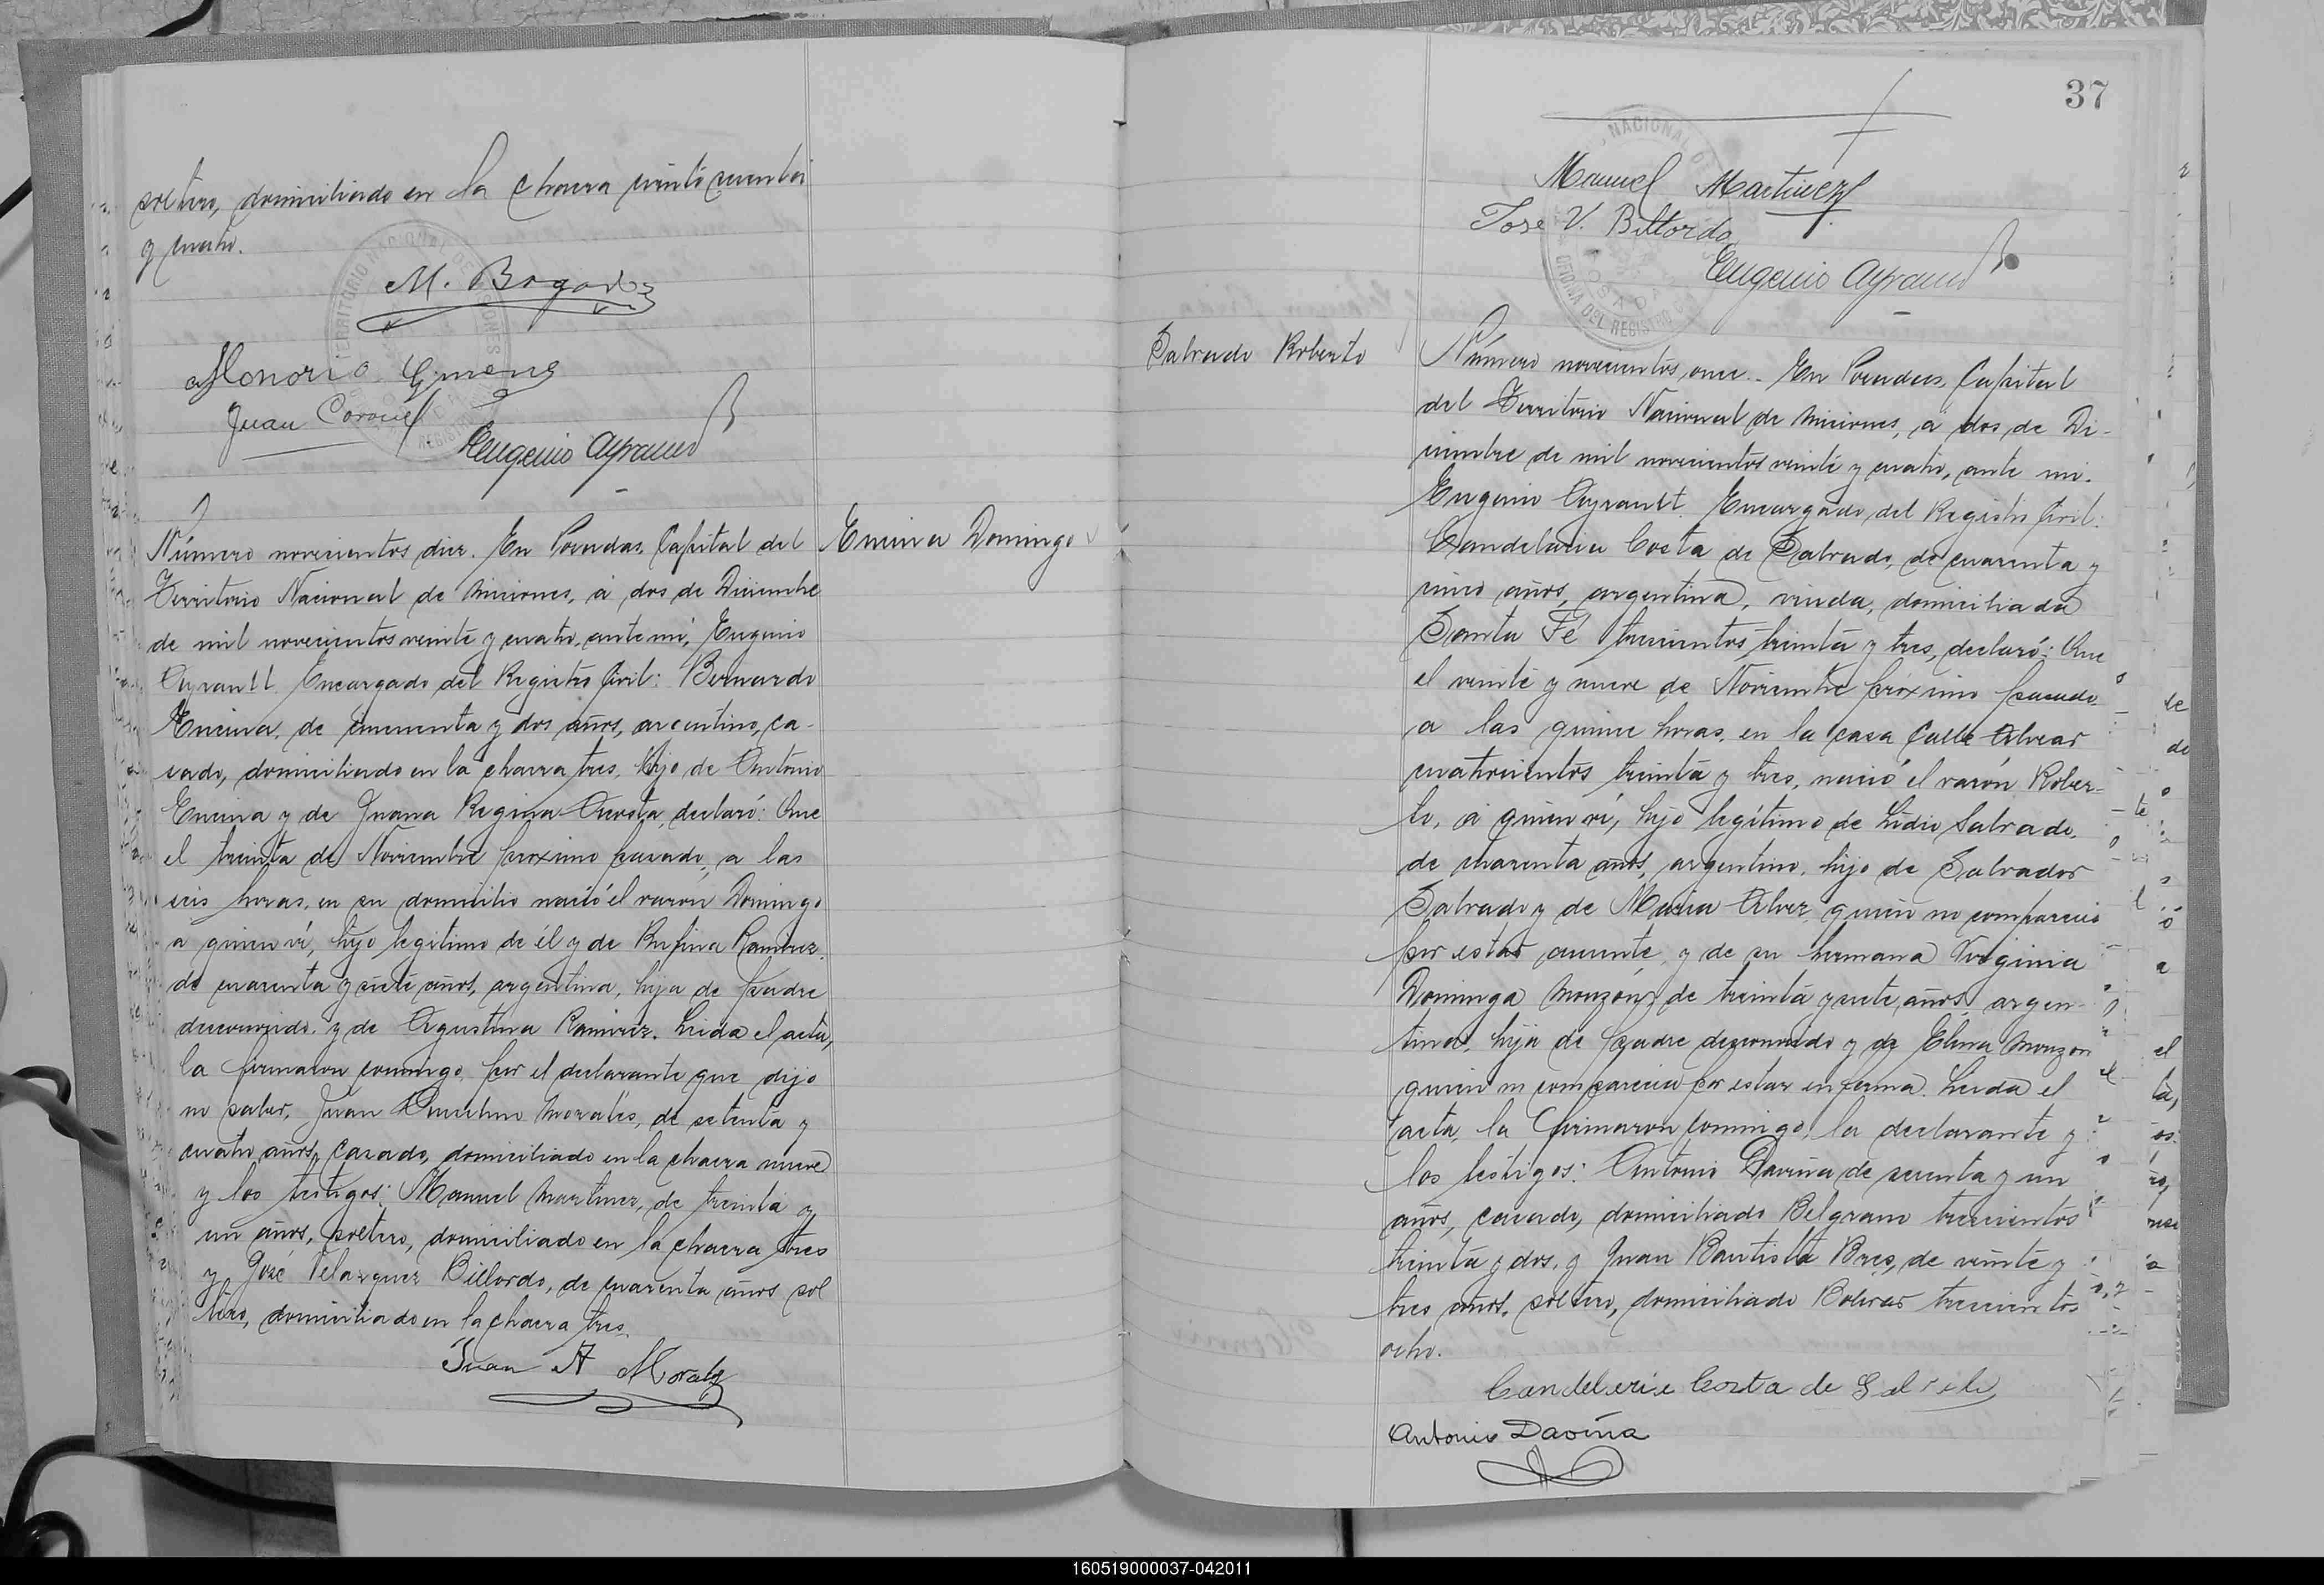 soltero, domiciliado en la chacra ciento cuenta
y cuatro.
M. Bogado
Honorio Gimenez
Juan Coronel
Eugenio Ayrault
Número novecientos diez. En Posadas, Capital del
Encina Domingo
Territorio Nacional de Misiones, á dos de Diciembre
de mil novecientos veinte y cuatro, ante mí, Eugenio
Ayrault Encargado del Registro Civil: Bernardo
Encina, de cincuenta y dos años, argentino, ca-
sado, domiciliado en la chacra tres, hijo de Antonio
Encina y de Juana Regina Acosta, declaró: Que
el treinta de Noviembre próximo pasado, a las
seis horas, en su domicilio nació el varón Domingo
a quien ví, hijo legítimo de él y de Rufina Ramirez,
de cuarenta y siete años, argentina, hija de padre
desconocido y de Agustina Ramirez. Leida el acta,
la firmaron conmigo, por el declarante que dijo
no saber, Juan Morales, de setenta y
cuatro años, casado, domiciliado en la chacra nueve
y los testigos: Manuel Martinez, de treinta y
un años, soltero, domiciliado en la chacra tres
y José Velazquez Billordo, de cuarenta años sol
tero, domiciliado en la chacra tres.
Juan A Morales
37
Manuel Martinez
Jose V. Billordo
Eugenio Ayrault
Salvado Roberto
Número novecientos once.. En Posadas, Capital
del Territorio Nacional de Misiones, á dos de Di-
ciembre de mil novecientos veinte y cuatro, ante mi.
Eugenio Ayrault. Encargado del Registro Civil:
Candelaria Costa de Salvado, de cuarenta y
cinco años, argentina, viuda, domiciliada
Santa Fé trescientos treinta y tres, declaró: Que
el veinte y nueve de Noviembre próximo pasado
a las quince horas, en la casa Calle Alvear
cuatrocientos treinta y tres, nació el varón Rober-
to, a quien ví, hijo legítimo de Lidio Salvado,
de cuarenta años, argentino, hijo de Salvador
Salvado y de Maria Alvez, quien no compareció
por estar ausente, y de su hermana Virginia
Dominga Monzón, de treinta y siete años, argen-
tina, hija de padre desconocido y de Elena Monzon
quien no compareció por estar enferma. Leida el
acta, la firmaron conmigo, la declarante y
los testigos: Antonio Daviña de sesenta y un
años, casado, domiciliado Belgrano trescientos
treinta y dos, y Juan Bautista Bres, de veinte y
tres años, soltero, domiciliado Bolivar trescientos
ocho.
Candelaria Costa de Salvado
Antonio Daviña
160519000037-042011